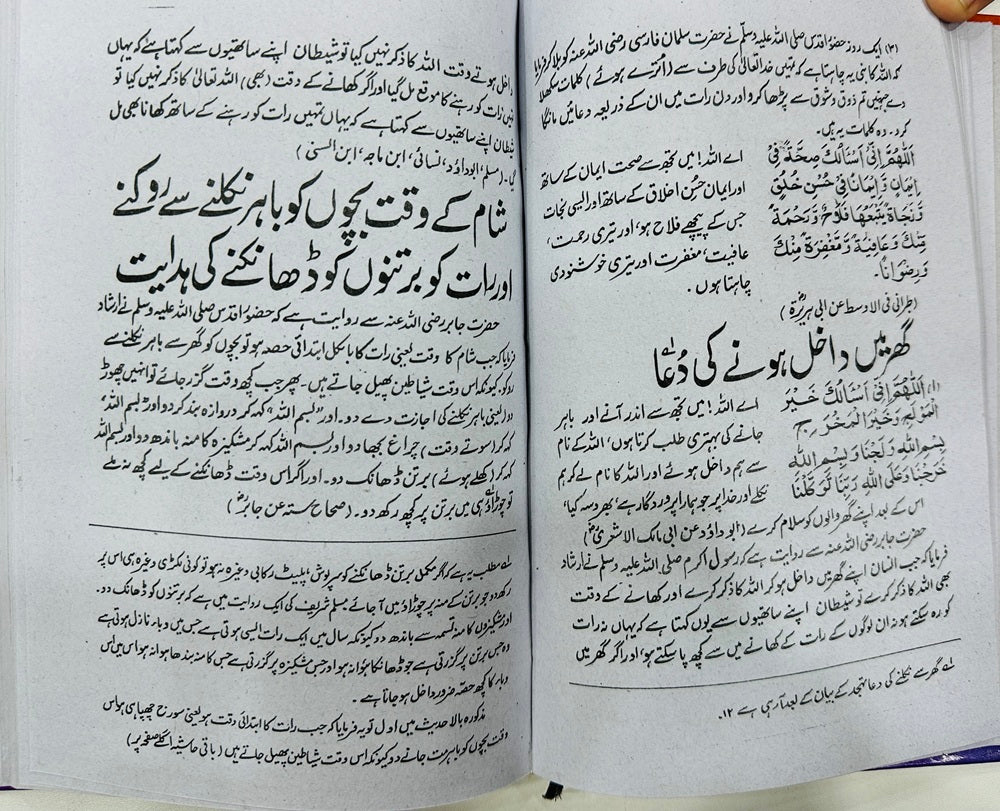 (۳) ایک روز حضورِ اقدس صلی اللہ علیہ وسلّم نے حضرت سلمان فارسی رضی اللہ عنہ کو بلا کر فرمایا
کہ اللہ کا نبی یہ چاہتا ہے کہ تمہیں خدا تعالیٰ کی طرف سے (اُترے ہوئے) کلمات سکھلا
دے جنہیں تم ذوق و شوق سے پڑھا کرو اور دن رات میں ان کے ذریعہ دعائیں مانگا
کرو۔ وہ کلمات یہ ہیں۔
اَللّٰهُمَّ اِنِّیْ اَسْاَلُكَ صِحَّةً فِیْ
اِیْمَانٍ وَّاِیْمَانًا فِیْ حُسْنِ خُلُقٍ
وَّنَجَاةً یَّتْبَعُهَا فَلَاحٌ وَّرَحْمَةً
مِّنْكَ وَعَافِیَةً وَّمَغْفِرَةً مِّنْكَ
وَرِضْوَانًا۔
اے اللہ! میں تجھ سے صحت ایمان کے ساتھ
اور ایمان حُسنِ اخلاق کے ساتھ اور ایسی نجات
جس کے پیچھے فلاح ہو، اور تیری رحمت،
عافیت، مغفرت اور تیری خوشنودی
چاہتا ہوں۔
(طبرانی فی الاوسط عن ابی ہریرۃؓ)
گھر میں داخل ہونے کی دُعا
(۱) اَللّٰهُمَّ اِنِّیْ اَسْاَلُكَ خَیْرَ
الْمَوْلَجِ وَخَیْرَ الْمَخْرَجِ
بِسْمِ اللّٰهِ وَلَجْنَا وَبِسْمِ اللّٰهِ
خَرَجْنَا وَعَلَی اللّٰهِ رَبِّنَا تَوَكَّلْنَا
اے اللہ! میں تجھ سے اندر آنے اور باہر
جانے کی بہتری طلب کرتا ہوں، اللہ کے نام
سے ہم داخل ہوئے اور اللہ کا نام لے کر ہم
نکلے اور خدا پر جو ہمارا پروردگار ہے، بھروسہ کیا،
اس کے بعد اپنے گھر والوں کو سلام کرے (ابوداؤد عن ابی مالک الاشعریؓ)
حضرت جابر رضی اللہ عنہ سے روایت ہے کہ رسول اکرم صلی اللہ علیہ وسلم نے ارشاد
فرمایا کہ جب انسان اپنے گھر میں داخل ہو کر اللہ کا ذکر کرے اور کھانے کے وقت
بھی اللہ کا ذکر کرے تو شیطان اپنے ساتھیوں سے یوں کہتا ہے کہ یہاں نہ رات
کو رہ سکتے ہو نہ ان لوگوں کے رات کے کھانے میں سے کچھ پا سکتے ہو، اور اگر گھر میں
لہ گھر سے نکلنے کی دعا تہجد کے بیان کے بعد آ رہی ہے ۱۲۔
داخل ہوتے وقت اللہ کا ذکر نہیں کیا تو شیطان اپنے ساتھیوں سے کہتا ہے کہ یہاں
تمہیں رات کو رہنے کا موقع مل گیا اور اگر کھانے کے وقت (بھی) اللہ تعالیٰ کا ذکر نہیں کیا تو
شیطان اپنے ساتھیوں سے کہتا ہے کہ یہاں تمہیں رات کو رہنے کے ساتھ کھانا بھی مل
گیا۔ (مسلم، ابوداؤد، نسائی، ابن ماجہ، ابن السنی)
شام کے وقت بچّوں کو باہر نکلنے سے روکنے
اور رات کو برتنوں کو ڈھانکنے کی ہدایت
حضرت جابر رضی اللہ عنہ سے روایت ہے کہ حضورِ اقدس صلی اللہ علیہ وسلم نے ارشاد
فرمایا کہ جب شام کا وقت یعنی رات کا بالکل ابتدائی حصہ ہو تو بچوں کو گھر سے باہر نکلنے سے
روکو، کیونکہ اس وقت شیاطین پھیل جاتے ہیں۔ پھر جب کچھ وقت گزر جائے تو انہیں چھوڑ
دو (یعنی باہر نکلنے کی) اجازت دے دو۔ اور "بسم اللہ" کہہ کر دروازہ بند کر دو اور "بسم اللہ"
کہہ کر (سوتے وقت) چراغ بجھا دو اور بسم اللہ کہہ کر مشکیزہ کا منہ باندھ دو اور بسم اللہ
کہہ کر (کھلے ہوئے) برتن ڈھانک دو۔ اور اگر اس وقت ڈھانکنے کے لیے کچھ نہ ملے
تو چوڑائی ہی میں برتن پر کچھ رکھ دو۔ (صحاح ستہ عن جابرؓ)
لہ مطلب یہ ہے کہ اگر مکمل برتن ڈھانکنے کو سرپوش پلیٹ رکابی وغیرہ نہ ہو تو کوئی لکڑی وغیرہ ہی اس پر
رکھ دو جو برتن کے منہ پر چوڑاؤ میں آ جائے مسلم شریف کی ایک روایت میں ہے کہ برتنوں کو ڈھانک دو۔
اور مشکیزوں کا منہ تسمہ سے باندھ دو کیونکہ سال میں ایک رات ایسی ہوتی ہے جس میں وباء نازل ہوتی ہے
وہ جس برتن پر گزرتی ہے جو ڈھانکا ہوا نہ ہو اور جس مشکیزہ پر گزرتی ہے جس کا منہ بندھا ہوا نہ ہو اس میں اس
وباء کا کچھ حصّہ ضرور داخل ہو جاتا ہے۔
مذکورہ بالا حدیث میں اول تو یہ فرمایا کہ جب رات کا ابتدائی وقت ہو یعنی سورج چھپا ہی ہو اس
وقت بچوں کو باہر مت جانے دو کیونکہ اس وقت شیاطین پھیل جاتے ہیں (باقی حاشیہ اگلے صفحہ پر)